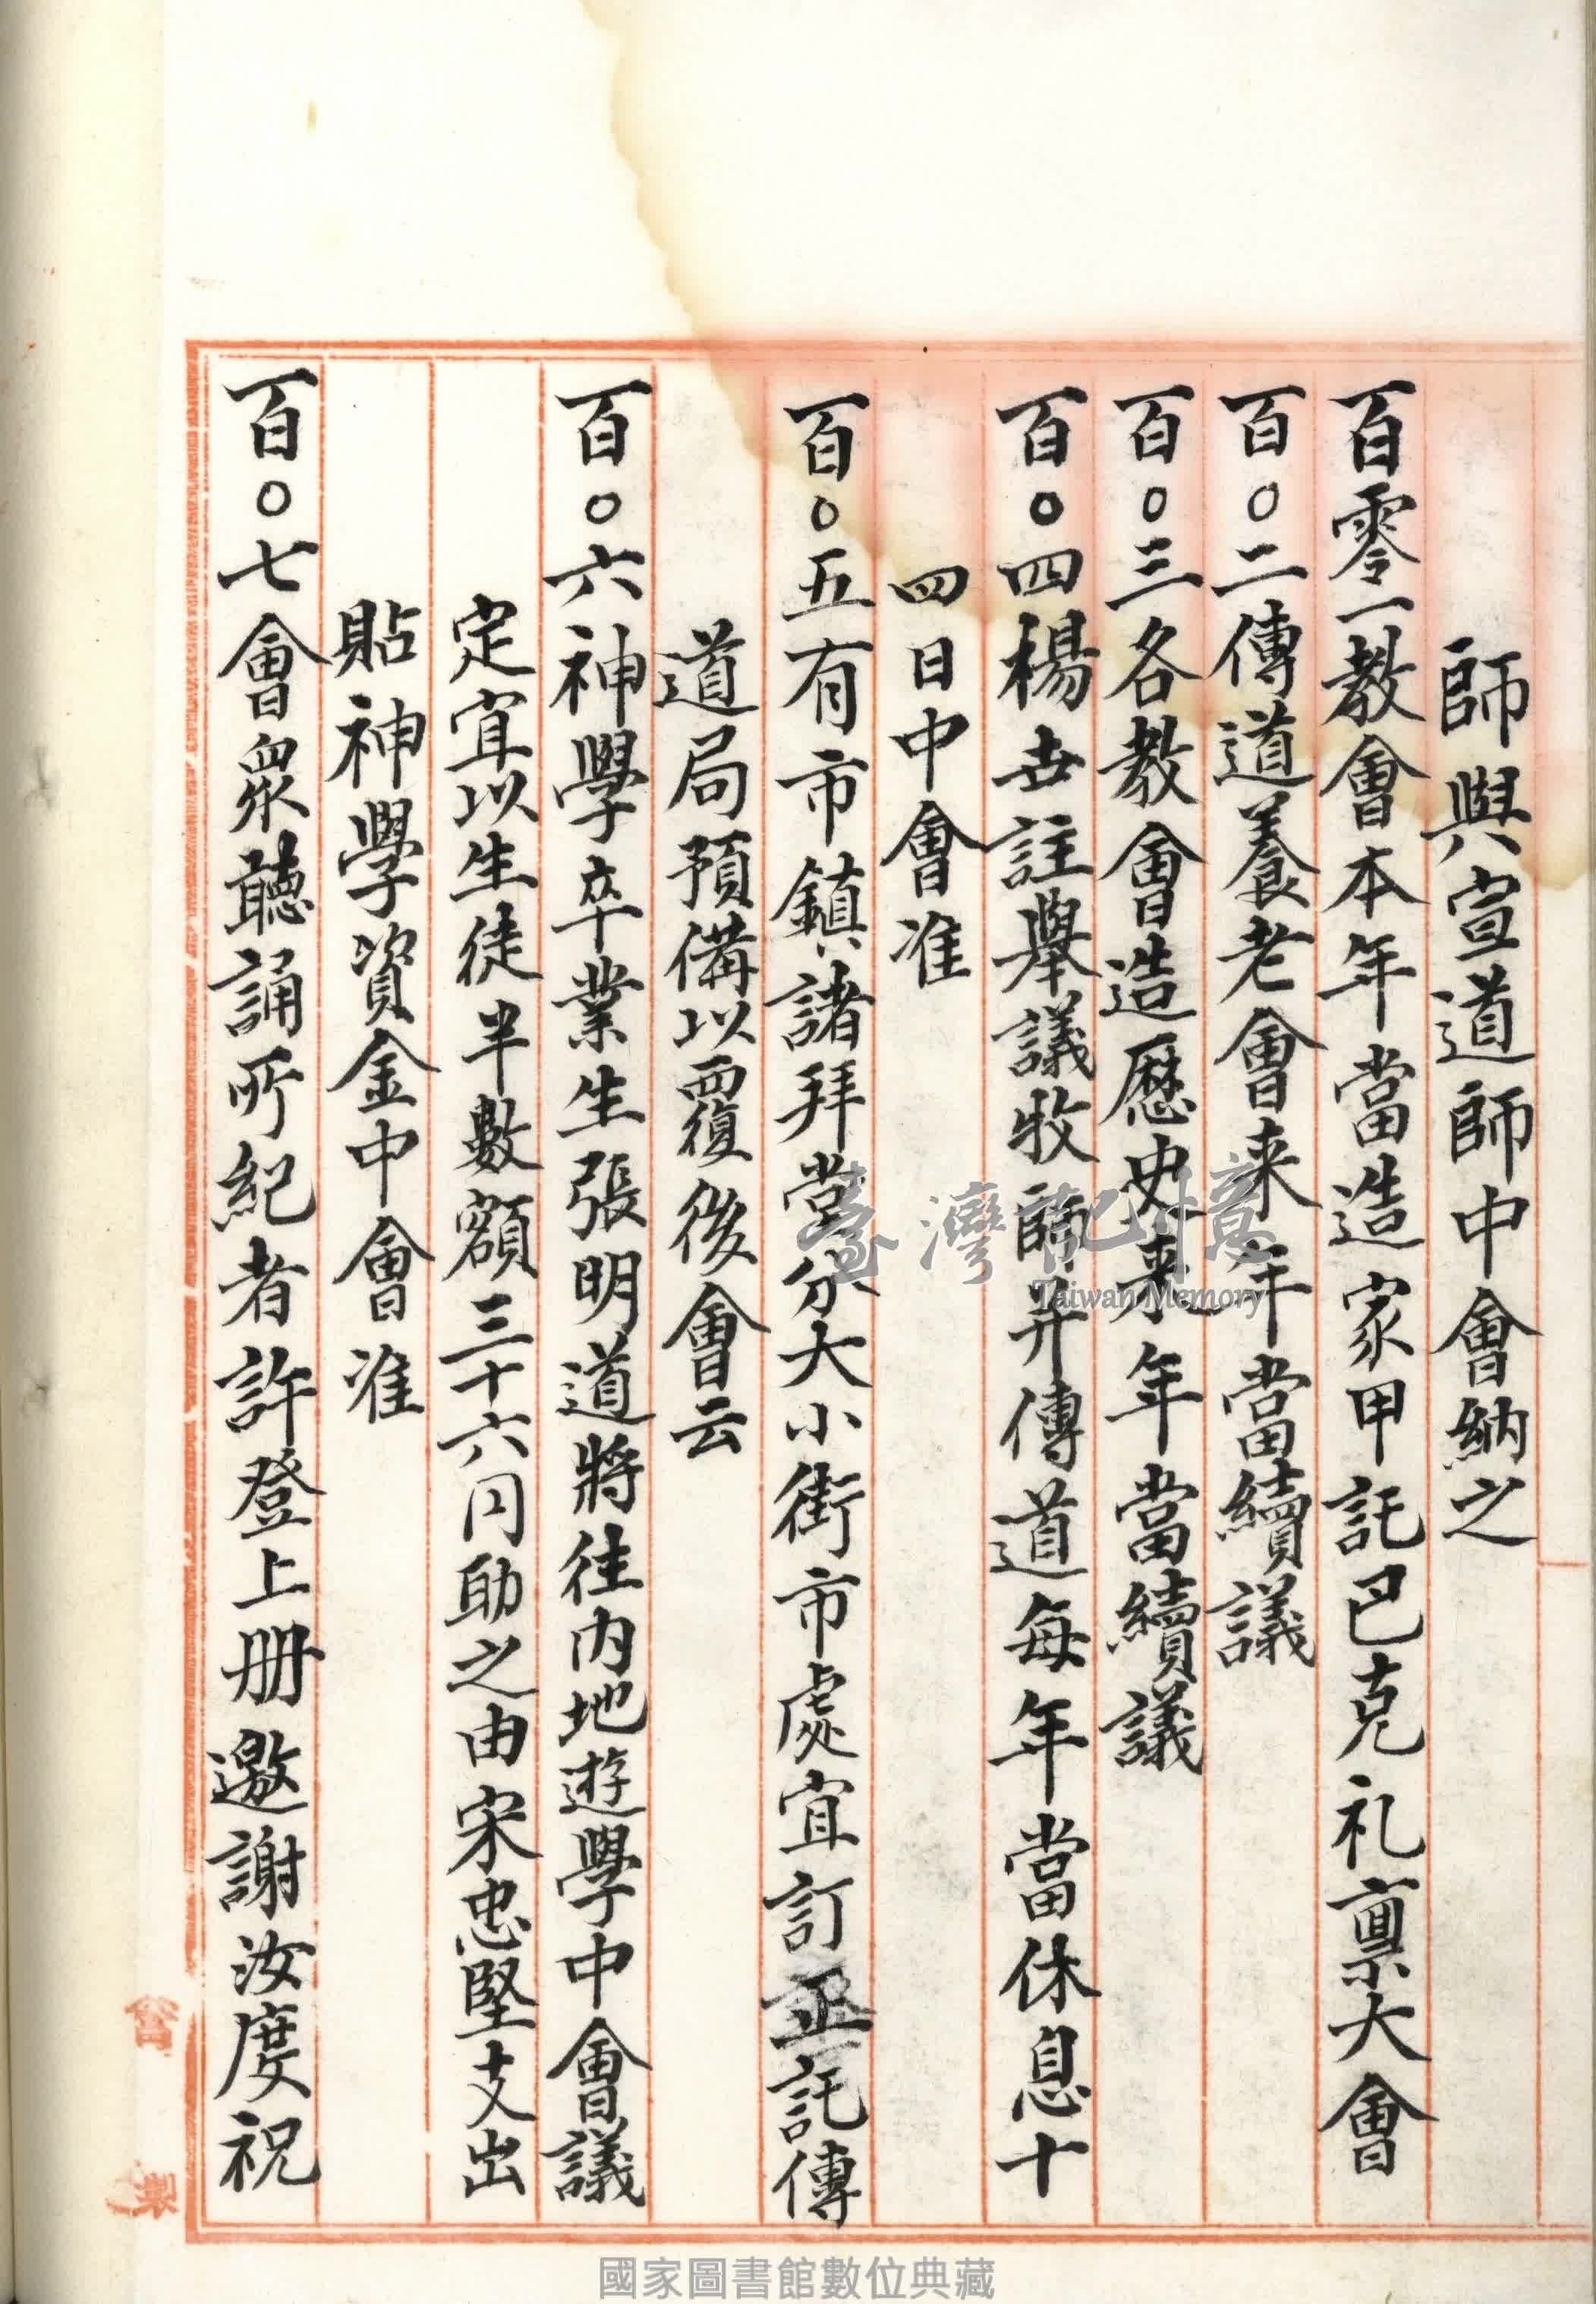 師與宣道師中會納之
百零一教會本年當造家甲託巴克礼稟大會
百〇二傳道養老會来年當續議
百〇三各教會造歷史来年當續議
百〇四楊世註舉議牧師并傳道每年當休息十
四日中會准
百〇五有市鎮諸拜堂分大小街市處宜訂正託傳
道局預備以覆後會云
百〇六神學卒業生張明道將往内地遊學中會議
定宜以生徒半數額三十六円助之由宋忠堅支出
貼神學資金中會准
百〇七會眾聽誦所紀者許登上册邀謝汝度祝
臺灣記憶
Taiwan Memory
國家圖書館數位典藏